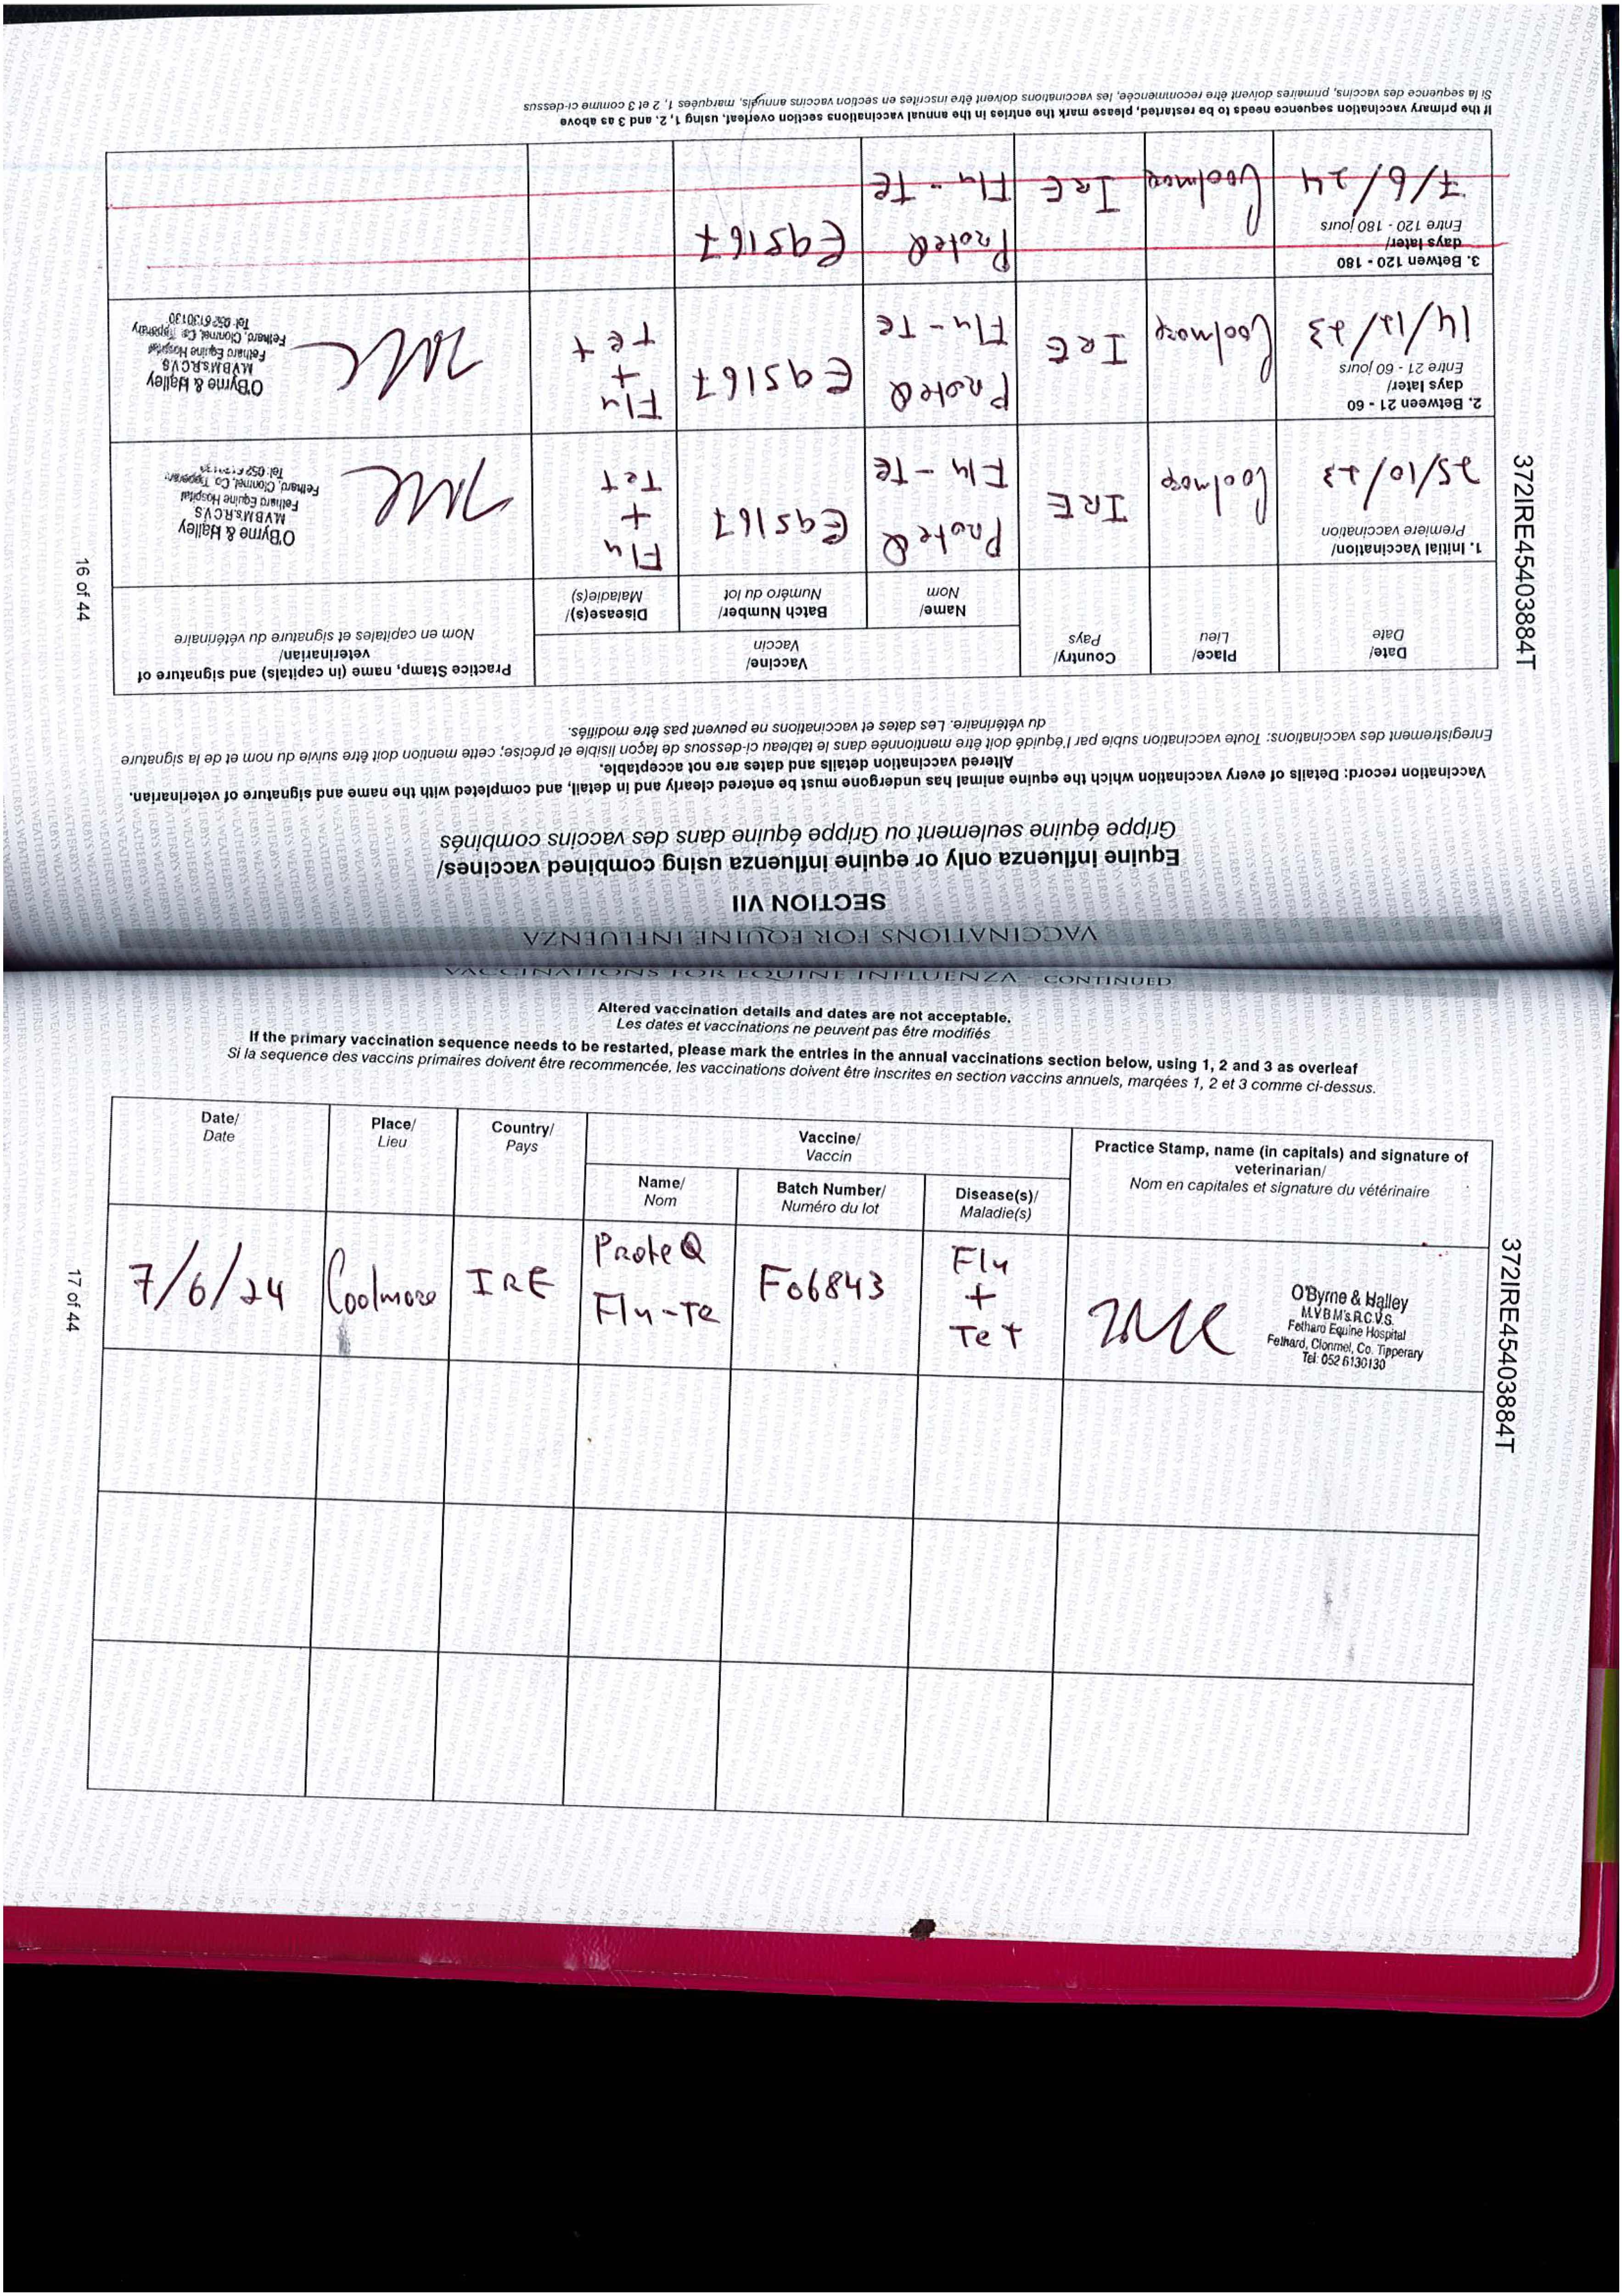 VACCINATIONS FOR EQUINE INFLUENZA
SECTION VII
Equine influenza only or equine influenza using combined vaccines/
Grippe équine seulement ou Grippe équine dans des vaccins combinés
Vaccination record: Details of every vaccination which the equine animal has undergone must be entered clearly and in detail, and completed with the name and signature of veterinarian.
Altered vaccination details and dates are not acceptable.
Enregistrement des vaccinations: Toute vaccination subie par l'équidé doit être mentionnée dans le tableau ci-dessous de façon lisible et précise; cette mention doit être suivie du nom et de la signature
du vétérinaire. Les dates et vaccinations ne peuvent pas être modifiés.
Date/
Date
Place/
Lieu
Country/
Pays
Vaccine/
Vaccin
Name/
Nom
Batch Number/
Numéro du lot
Disease(s)/
Maladie(s)
Practice Stamp, name (in capitals) and signature of
veterinarian/
Nom en capitales et signature du vétérinaire
1. Initial Vaccination/
Premiere vaccination
25/10/23
Coolmore
IRE
ProteQ
Flu-Te
E95167
Flu
+
Tet
O'Byrne & Halley
M.V.B M's.R.C.V.S.
Fethard Equine Hospital
Fethard, Clonmel, Co. Tipperary
2. Between 21 - 60
days later/
Entre 21 - 60 jours
14/12/23
Coolmore
IRE
ProteQ
Flu-Te
E95167
Flu
+
Tet
O'Byrne & Halley
M.V.B M's.R.C.V.S.
Fethard Equine Hospital
Fethard, Clonmel, Co. Tipperary
Tel: 052 6130130
3. Betwen 120 - 180
days later/
Entre 120 - 180 jours
7/6/24
Coolmore
IRE
ProteQ
Flu-Te
E95167
If the primary vaccination sequence needs to be restarted, please mark the entries in the annual vaccinations section overleaf, using 1, 2. and 3 as above
Si la sequence des vaccins, primaires doivent être recommencée, les vaccinations doivent être inscrites en section vaccins annuels, marquées 1, 2 et 3 comme ci-dessus
372IRE45403884T
16 of 44
VACCINATIONS FOR EQUINE INFLUENZA - CONTINUED
Altered vaccination details and dates are not acceptable.
Les dates et vaccinations ne peuvent pas être modifiés
If the primary vaccination sequence needs to be restarted, please mark the entries in the annual vaccinations section below, using 1, 2 and 3 as overleaf
Si la sequence des vaccins primaires doivent être recommencée, les vaccinations doivent être inscrites en section vaccins annuels, marqées 1, 2 et 3 comme ci-dessus.
Date/
Date
Place/
Lieu
Country/
Pays
Vaccine/
Vaccin
Name/
Nom
Batch Number/
Numéro du lot
Disease(s)/
Maladie(s)
Practice Stamp, name (in capitals) and signature of
veterinarian/
Nom en capitales et signature du vétérinaire
7/6/24
Coolmore
IRE
ProteQ
Flu-Te
F06843
Flu
+
Tet
O'Byrne & Halley
M.V.B M's.R.C.V.S.
Fethard Equine Hospital
Fethard, Clonmel, Co. Tipperary
Tel: 052 6130130
372IRE45403884T
17 of 44